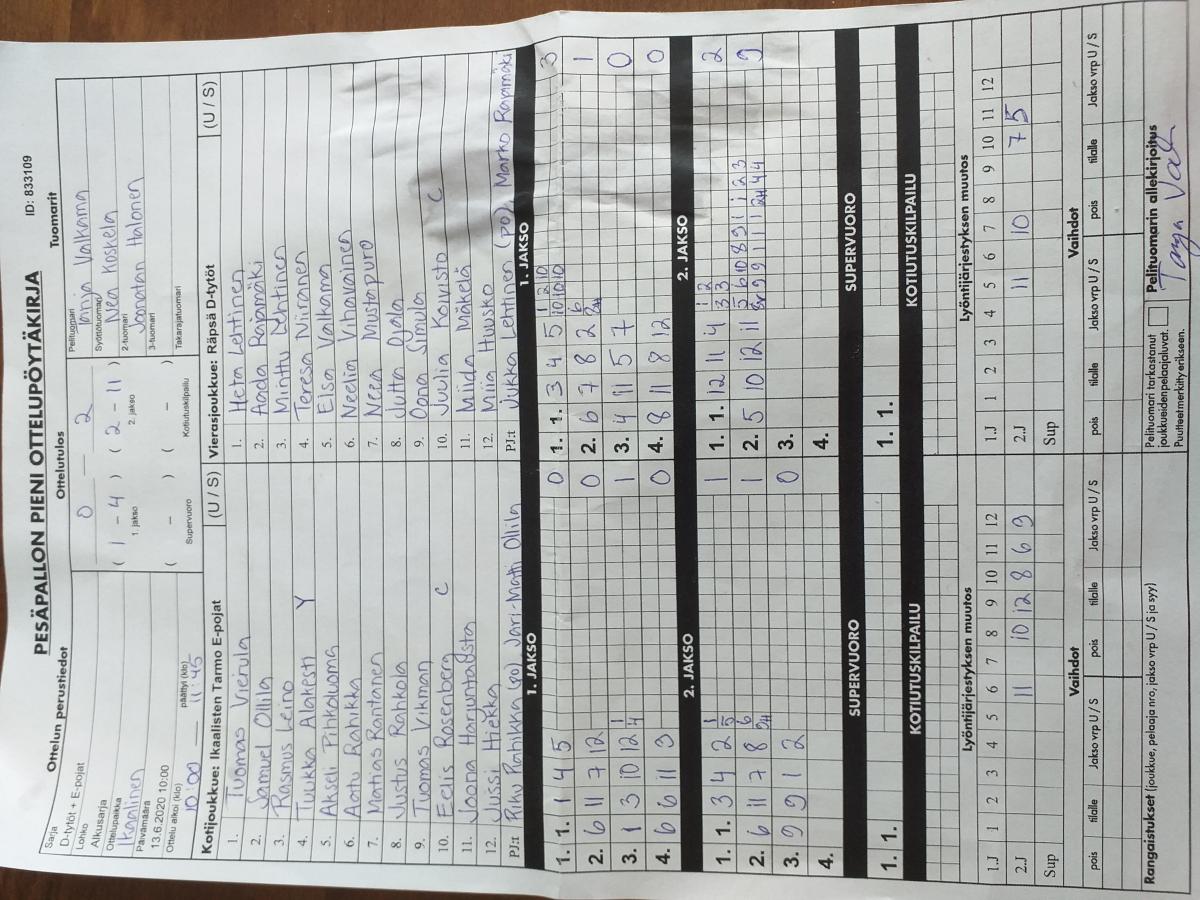 PESÄPALLON PIENI OTTELUPÖYTÄKIRJA ID: 833109
Ottelun perustiedot Ottelutulos Tuomarit
Sarja
D-tytöt + E-pojat
Lohko
Alkusarja
Ottelupaikka
Ikaalinen
Päivämäärä
13.6.2020 10:00
Ottelu alkoi (klo) päättyi (klo)
10:00 — 11:45
0 — 2
( 1 - 4 ) ( 2 - 11 )
1. jakso 2. jakso
( - ) ( - )
Supervuoro Kotiutuskilpailu
Pelituomari
Valkama
Syöttötuomari
Nea Koskela
2-tuomari
Joonatan Halonen
3-tuomari
Takarajatuomari
Kotijoukkue: Ikaalisten Tarmo E-pojat (U / S)
1. Tuomas Vierula
2. Samuel Ollila
3. Rasmus Leino
4. Tuukka Alakesti Y
5. Akseli Pihkoluoma
6. Aatu Rahikka
7. Matias Rantanen
8. Justus Rahkola
9. Tuomas Vikman
10. Eelis Rosenberg C
11. Joona Harjuntausta
12. Jussi Hiekka
PJ:t Riku Rahikka Jari-Matti Ollila
Vierasjoukkue: Räpsä D-tytöt (U / S)
1. Heta Lehtinen
2. Aada Rajamäki
3. Minttu Lehtinen
4. Teresa Niranen
5. Elsa Valkama
6. Neelia Vihavainen
7. Neea Mustapuro
8. Jutta Ojala
9. Oona Simula
10. Juulia Koivisto C
11. Miida Mäkelä
12. Miia Huusko
PJ:t Jukka Lehtinen (po), Marko Rajamäki
1. JAKSO 1. JAKSO
1. 1. 1 4 5 0
2. 6 11 7 12 0
3. 1 3 10 12 1/4 1
4. 6 6 11 9 0
1. 1. 3 4 5 1/10 2/10 10/10 3
2. 6 7 8 2 1
3. 4 11 5 7 0
4. 8 11 8 12 0
2. JAKSO 2. JAKSO
1. 1. 3 4 2 1/5 1
2. 6 11 7 8 1
3. 9 1 2 0
4.
1. 1. 12 11 4 1/3 2/3 2
2. 5 10 12 11 9
3.
4.
SUPERVUORO SUPERVUORO
1. 1. 1. 1.
KOTIUTUSKILPAILU KOTIUTUSKILPAILU
Lyöntijärjestyksen muutos Lyöntijärjestyksen muutos
1.J 1 2 3 4 5 6 7 8 9 10 11 12 1.J 1 2 3 4 5 6 7 8 9 10 11 12
2.J 11 10 12 8 6 9 2.J 11 10 7 5
Sup Sup
Vaihdot Vaihdot
pois tilalle Jakso vrp U / S pois tilalle Jakso vrp U / S pois tilalle Jakso vrp U / S pois tilalle Jakso vrp U / S
Rangaistukset (joukkue, pelaaja nro, jakso vrp U / S ja syy)
Pelituomari tarkastanut
joukkueiden pelaajaluvat.
Puutteet merkitty erikseen
Pelituomarin allekirjoitus